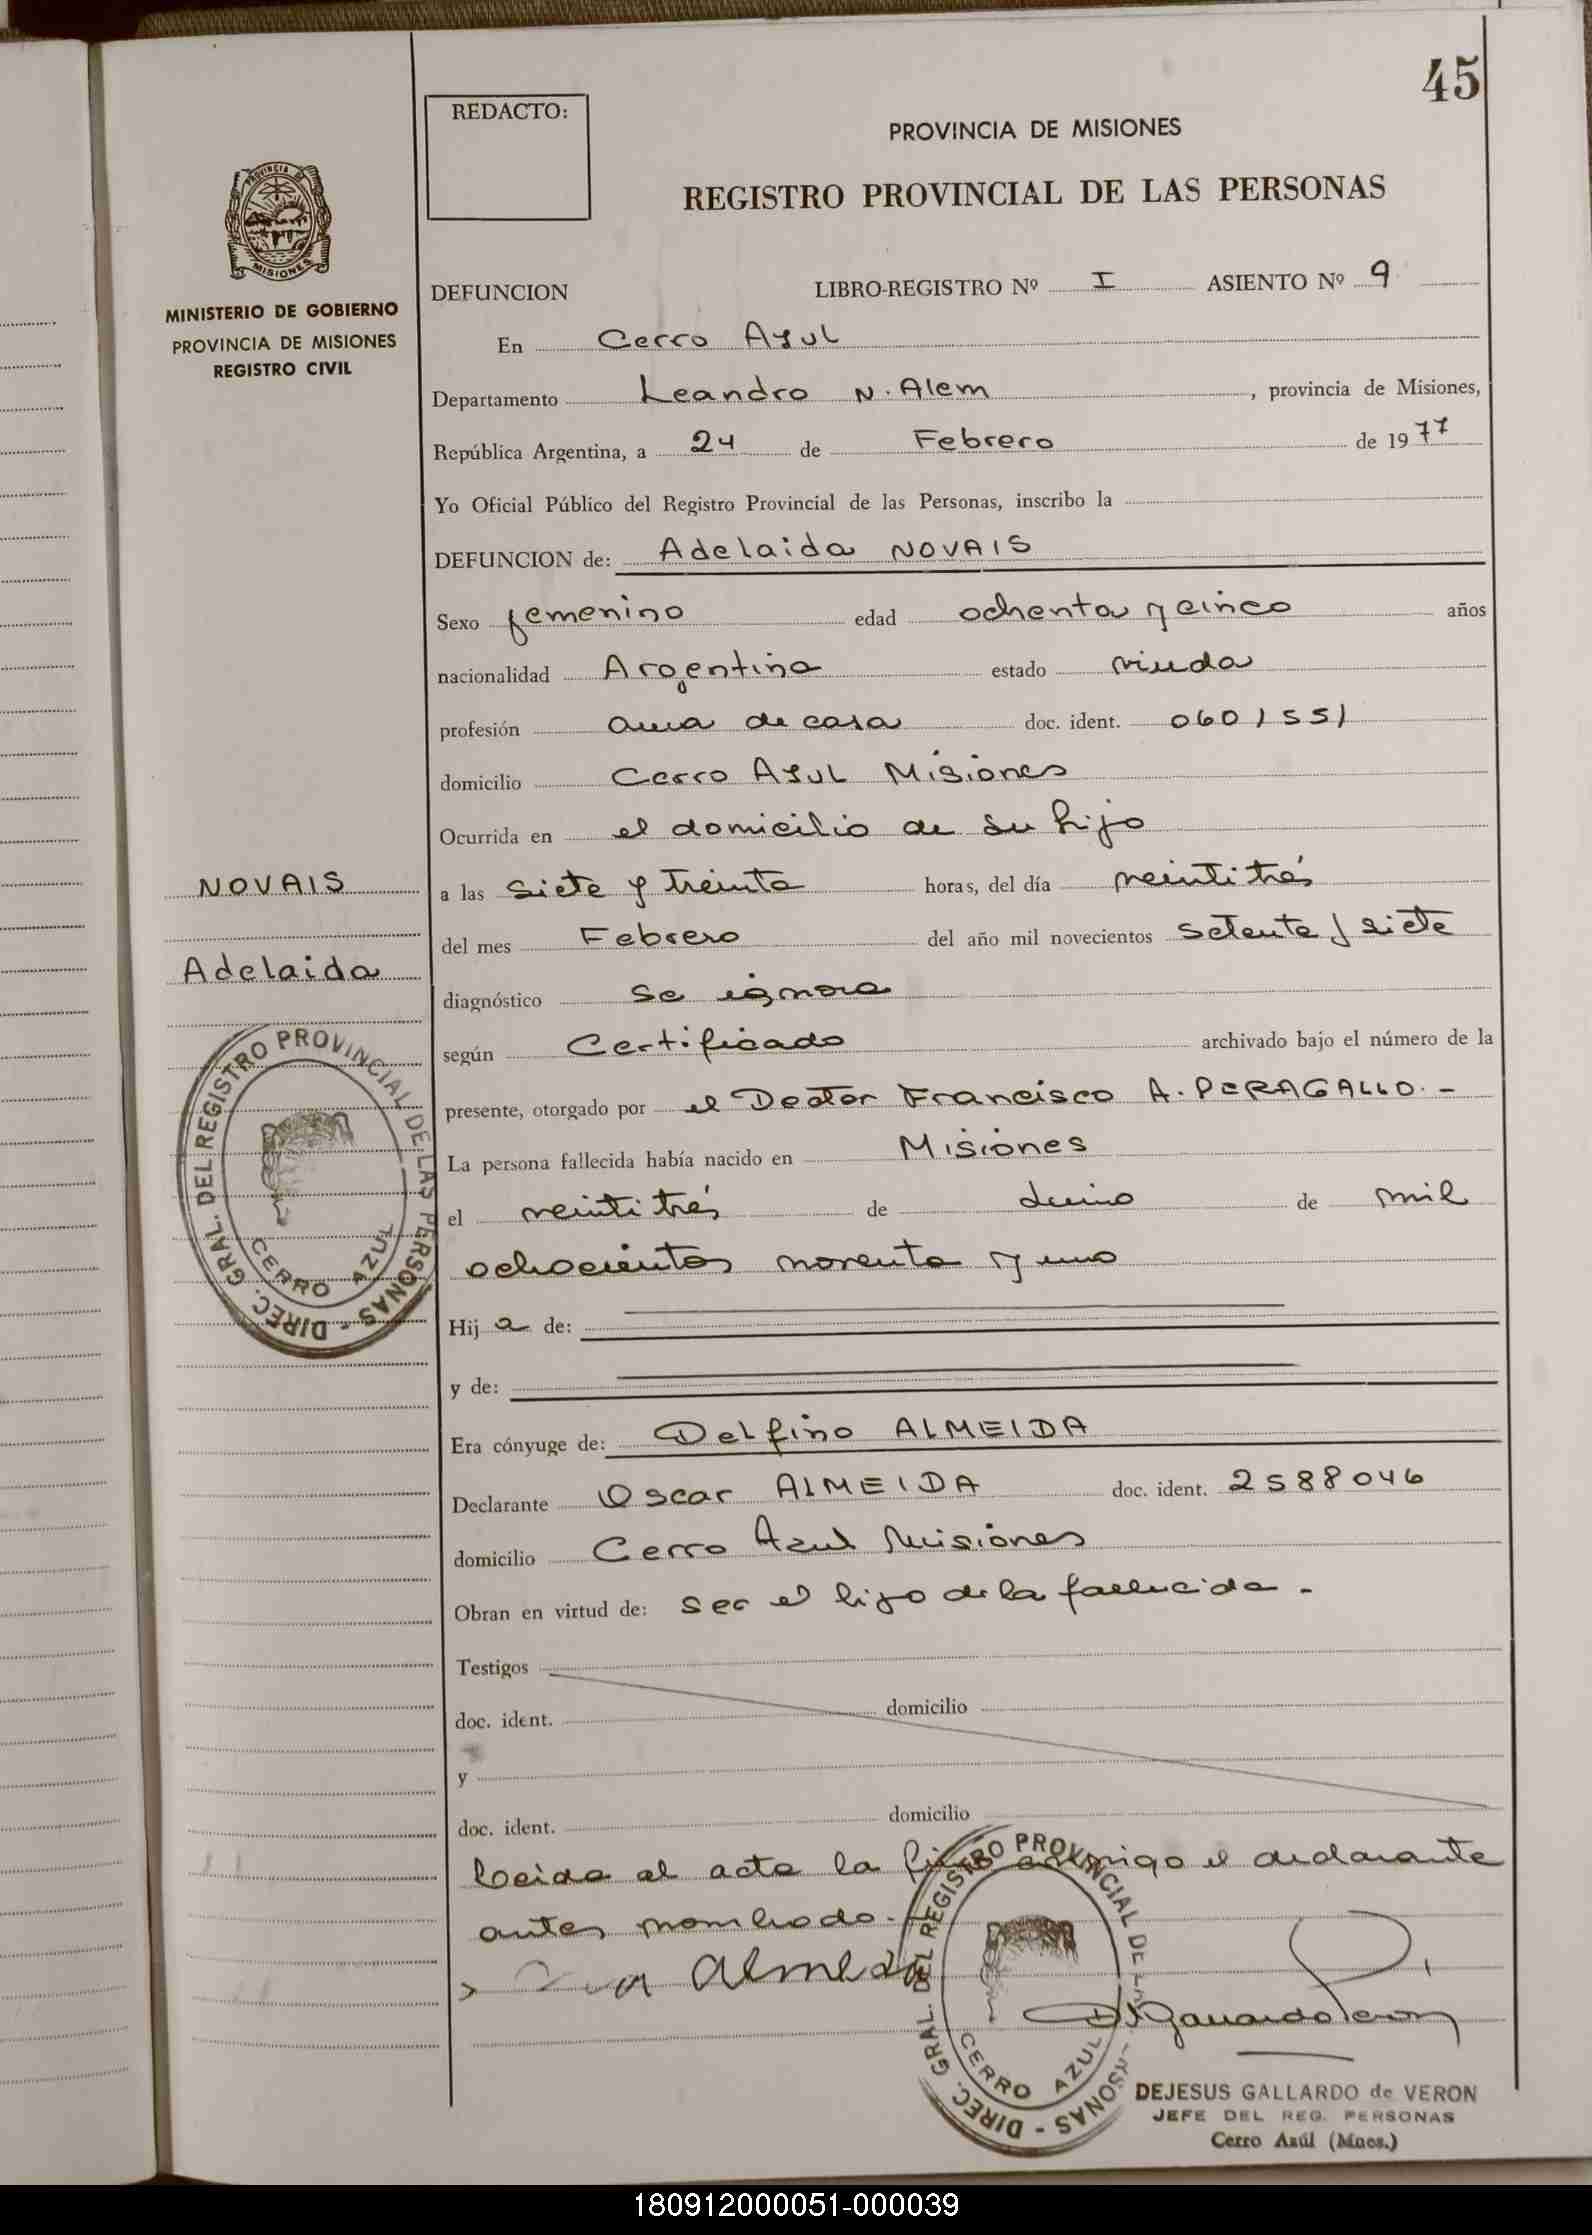 45
REDACTO:
PROVINCIA DE MISIONES
REGISTRO PROVINCIAL DE LAS PERSONAS
PROVINCIA DE
MISIONES
MINISTERIO DE GOBIERNO
PROVINCIA DE MISIONES
REGISTRO CIVIL
DEFUNCION LIBRO-REGISTRO Nº I ASIENTO Nº 9
En Cerro Azul
Departamento Leandro N. Alem, provincia de Misiones,
República Argentina, a 24 de Febrero de 1977
Yo Oficial Público del Registro Provincial de las Personas, inscribo la
DEFUNCION de: Adelaida NOVAIS
Sexo femenino edad ochenta y cinco años
nacionalidad Argentina estado viuda
profesión ama de casa doc. ident. 0601551
domicilio Cerro Azul Misiones
Ocurrida en el domicilio de su hijo
NOVAIS
a las siete y treinta horas, del día veintitrés
del mes Febrero del año mil novecientos setenta y siete
Adelaida
diagnóstico se ignora
según Certificado archivado bajo el número de la
presente, otorgado por el Doctor Francisco A. PERAGALLO.-
La persona fallecida había nacido en Misiones
el veintitrés de Junio de mil
ochocientos noventa y uno
DIREC. GRAL. DEL REGISTRO PROVINCIAL DE LAS PERSONAS -
CERRO AZUL
Hija de:
y de:
Era cónyuge de: Delfino ALMEIDA
Declarante Oscar ALMEIDA doc. ident. 2588046
domicilio Cerro Azul Misiones
Obran en virtud de: ser el hijo de la fallecida -
Testigos
doc. ident. domicilio
y
doc. ident. domicilio
Leida el acta la conmigo el declarante
antes nombrado.-
Almeida
DIREC. GRAL. DEL REGISTRO PROVINCIAL DE LAS PERSONAS -
CERRO AZUL
DEJESUS GALLARDO de VERON
JEFE DEL REG. PERSONAS
Cerro Azúl (Mnes.)
180912000051-000039